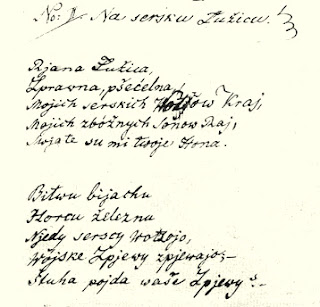 No: 1. Na serbsku Łužicu.
Rjana Łužica,
Zprawna, pšećelna,
Mojich serskich Wótcow Kraj,
Mojich zbóžnych Sonow Raj,
Swjate su mi twoje Hona.
Bitwu bijachu
Horcu železnu
Njedy serscy Wótcojo,
Wójske Zpjewy zpjewajo;
Štuha pójda waše Zpjewy?